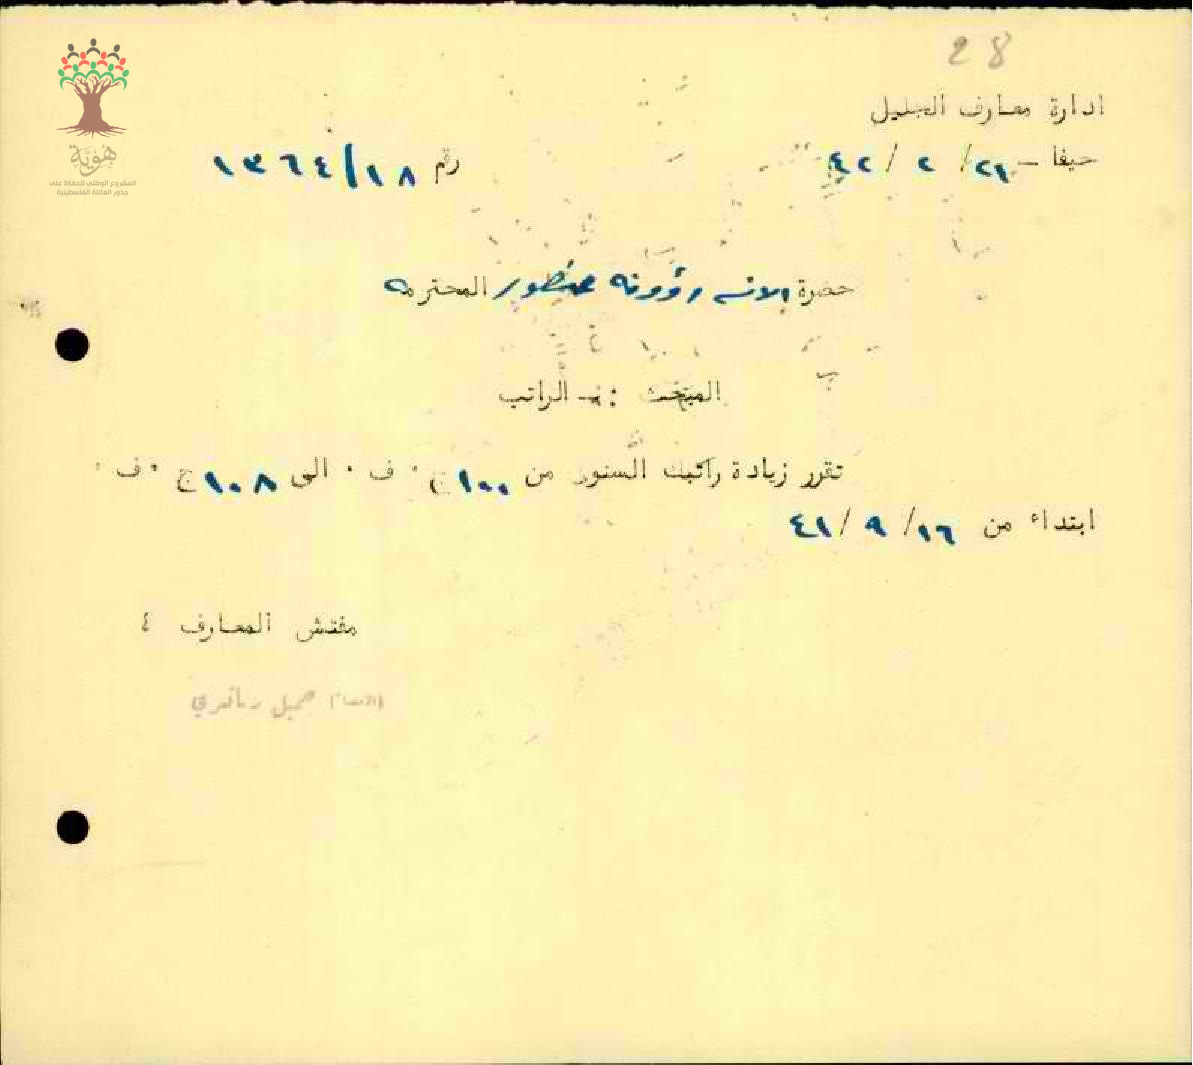 28
هوية
المشروع الوطني للحفاظ على
جذور العائلة الفلسطينية
ادارة معارف الجليل
حيفا - ٢١/ ٢ / ٤٢
رقم ١٨/١٣٦٤
حضرة الانسه رؤوفه المحترمه
المبحث :- الراتب
تقرر زيادة راتبك السنوي من ١٠٠ ج٠ ف ٠ الى ١٠٨ ج ٠ ف ٠
ابتداء من ١٦/ ٩ /٤١
مفتش المعارف ٤
(الامضاء) جميل